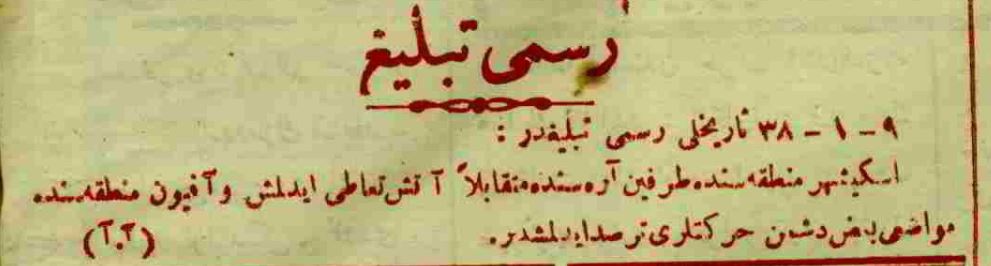 رسمی تبلیغ
۹ - ۱ - ۳۸ تاریخلی رسمی تبلیغدر :
اسکیشهر منطقه‌سنده طرفین آره‌سنده متقابلاً آتش تعاطی ایدلمش و آفیون منطقه‌سنده
مواضعی بعض دشمن حرکتلری ترصد ایدلمشدر. (آ.آ)